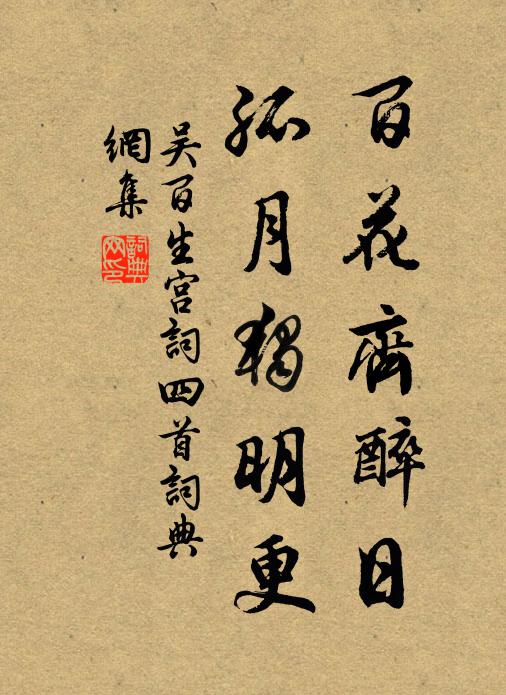 百花齊醉日
孤月獨明更
吴百生宮詞四首詞典
網集
詞典網印